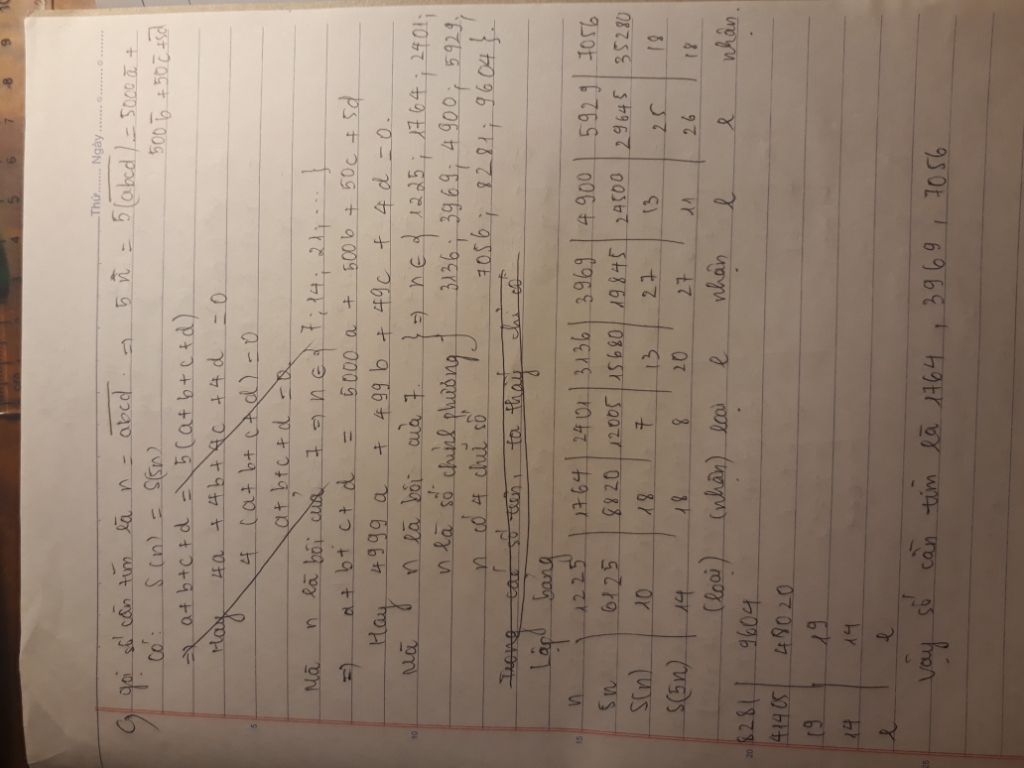 Thứ ........ Ngày ....................
gọi số cần tìm là n = abcd ⇒ 5n = 5(abcd) = 5000a +
500b + 50c + 5d
có: S(n) = S(5n)
⇒ a+b+c+d = 5(a+b+c+d)
Hay 4a + 4b + 4c + 4d = 0
4 (a+b+c+d) = 0
a+b+c+d = 0
Mà n là bôi của 7 ⇒ n ∈ { 7; 14; 21; ... }
⇒ a+b+c+d = 5000a + 500b + 50c + 5d
Hay 4999a + 499b + 49c + 4d = 0.
Mà n là bôi của 7. } ⇒ n ∈ { 1225; 1764; 2401;
n là số chính phương 3136; 3969; 4900; 5929;
n có 4 chữ số 7056; 8281; 9604 }.
Trong các số trên, ta thấy chỉ có
Lập bảng
n | 1225 | 1764 | 2401 | 3136 | 3969 | 4900 | 5929 | 7056
5n | 6125 | 8820 | 12005 | 15680 | 19845 | 24500 | 29645 | 35280
S(n) | 10 | 18 | 7 | 13 | 27 | 13 | 25 | 18
S(5n) | 14 | 18 | 8 | 20 | 27 | 11 | 26 | 18
(loại) (nhân) loai l nhân l l nhân.
8281 | 9604
41405 | 48020
19 | 19
14 | 14
l | l
Vậy số cần tìm là 1764, 3969, 7056